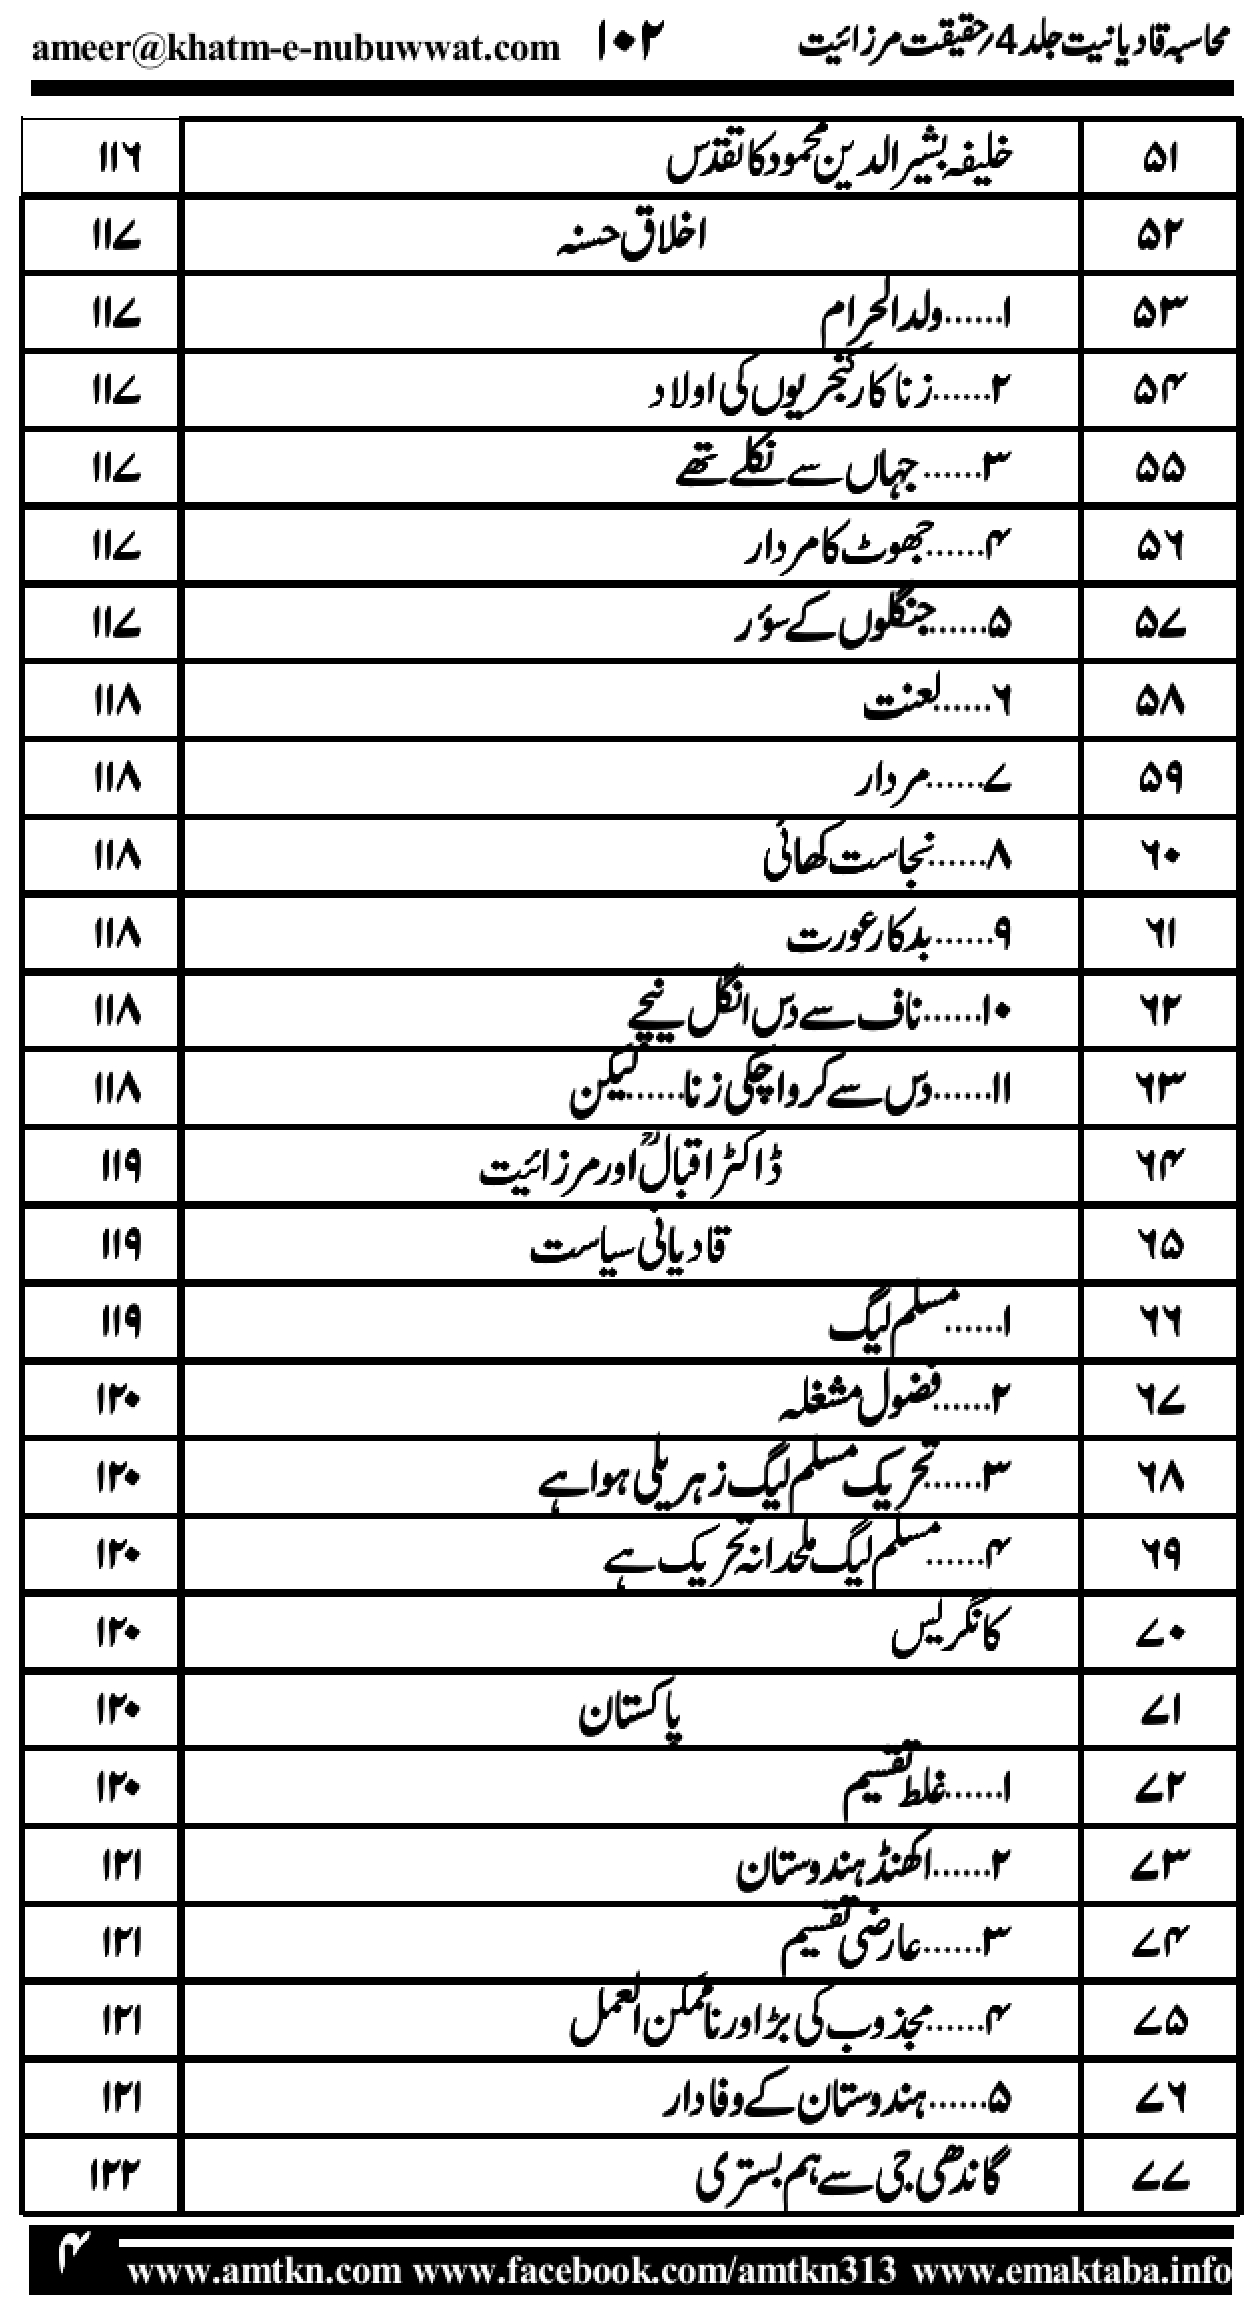 محاسبہ قادیانیت جلد 4/ حقیقت مرزائیت ۱۰۲ ameer@khatm-e-nubuwwat.com
۵۱ خلیفہ بشیر الدین محمود کا تقدّس ۱۱۶
۵۲ اخلاق حسنہ ۱۱۷
۵۳ ۱......ولد الحرام ۱۱۷
۵۴ ۲......زنا کار کنجریوں کی اولاد ۱۱۷
۵۵ ۳......جہاں سے نکلے تھے ۱۱۷
۵۶ ۴......جھوٹ کا مردار ۱۱۷
۵۷ ۵......جنگلوں کے سؤر ۱۱۷
۵۸ ۶......لعنت ۱۱۸
۵۹ ۷......مردار ۱۱۸
۶۰ ۸......نجاست کھائی ۱۱۸
۶۱ ۹......بدکار عورت ۱۱۸
۶۲ ۱۰......ناف سے دس انگل نیچے ۱۱۸
۶۳ ۱۱......دس سے کروا چکی زنا......لیکن ۱۱۸
۶۴ ڈاکٹر اقبالؒ اور مرزائیت ۱۱۹
۶۵ قادیانی سیاست ۱۱۹
۶۶ ۱......مسلم لیگ ۱۱۹
۶۷ ۲......فضول مشغلہ ۱۲۰
۶۸ ۳......تحریک مسلم لیگ زہریلی ہوا ہے ۱۲۰
۶۹ ۴......مسلم لیگ ملحدانہ تحریک ہے ۱۲۰
۷۰ کانگریس ۱۲۰
۷۱ پاکستان ۱۲۰
۷۲ ۱......غلط تقسیم ۱۲۰
۷۳ ۲......اکھنڈ ہندوستان ۱۲۱
۷۴ ۳......عارضی تقسیم ۱۲۱
۷۵ ۴......مجذوب کی بڑ اور ناممکن العمل ۱۲۱
۷۶ ۵......ہندوستان کے وفادار ۱۲۱
۷۷ گاندھی جی سے ہم بستری ۱۲۲
۴
www.amtkn.com www.facebook.com/amtkn313 www.emaktaba.info